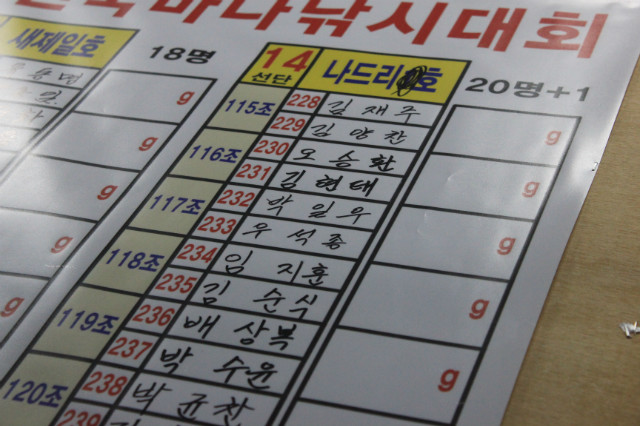 바다낚시대회
새제일호
18명
g
g
g
g
g
14
선단
나드리 호
20명+1
115조
228 김재주
229 김양찬
g
116조
230 오승환
231 김현태
g
117조
232 박일우
233 우석종
g
118조
234 임지훈
235 김순식
g
119조
236 배상복
237 박수윤
g
120조
238 박균찬
239